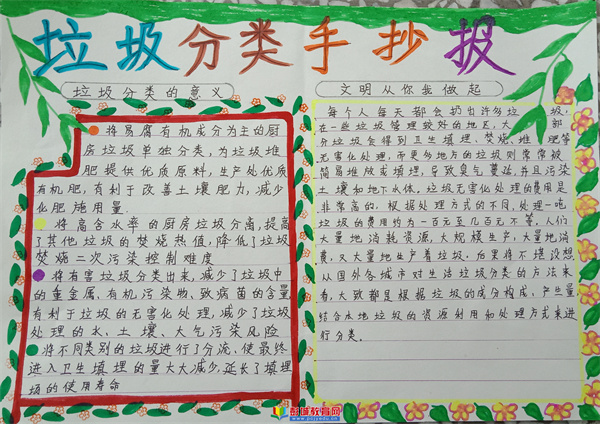 垃圾分类手抄报
垃圾分类的意义
将易腐有机成分为主的厨
房垃圾单独分类,为垃圾堆
肥提供优质原料,生产处优质
有机肥,有利于改善土壤肥力,减少
化肥施用量.
将高含水率的厨房垃圾分离,提高
了其他垃圾的焚烧热值,降低了垃圾
焚烧二次污染控制难度
将有害垃圾分类出来,减少了垃圾中
的重金属,有机污染物、致病菌的含量,
有利于垃圾的无害化处理,减少了垃圾
处理的水、土壤、大气污染风险
将不同类别的垃圾进行了分流、使最终
进入卫生填埋的量大大减少,延长了填埋
场的使用寿命
文明从你我做起
每个人每天都会扔出许多垃圾,
在一些垃圾管理较好的地区,大部
分垃圾会得到卫生填埋、焚烧、堆肥等
无害化处理,而更多地方的垃圾则常常被
简易堆放或填埋,导致臭气蔓延,并且污染
土壤和地下水体.垃圾无害化处理的费用是
非常高的,根据处理方式的不同,处理一吨
垃圾的费用约为一百元至几百元不等.人们
大量地消耗资源,大规模生产,大量地消
费,又大量地生产着垃圾.后果将不堪设想
从国外各城市对生活垃圾分类的方法来
看,大致都是根据垃圾的成分构成,产生量
结合本地垃圾的资源利用和处理方式来进
行分类.
教育网